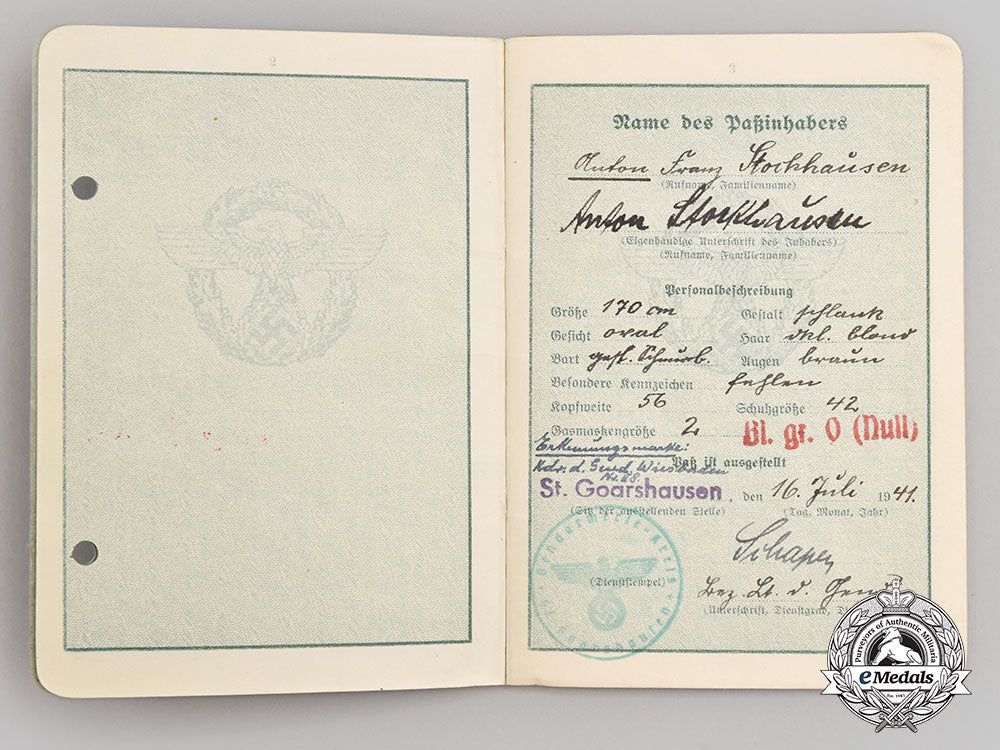 2
3
Name des Paßinhabers
Anton Franz Stockhausen
(Rufname, Familienname)
Anton Stockhausen
(Eigenhändige Unterschrift des Inhabers)
(Rufname, Familienname)
Personalbeschreibung
Größe 170 cm Gestalt schlank
Gesicht oval Haar dkl. blond
Bart gest. Schnurb. Augen braun
Besondere Kennzeichen fehlen
Kopfweite 56 Schuhgröße 42
Gasmaskengröße 2 Bl. gr. O (Null)
Erkennungsmarke:
Kdr. d. Gend. Wiesbaden
Paß ist ausgestellt
St. Goarshausen, den 16. Juli 1941.
(Sitz der ausstellenden Stelle) (Tag, Monat, Jahr)
Gendarmerie-Kreis
St. Goarshausen
(Dienststempel)
Bez. Lt. d. Gend.
(Unterschrift, Dienstgrad,
Purveyors of Authentic Militaria
eMedals